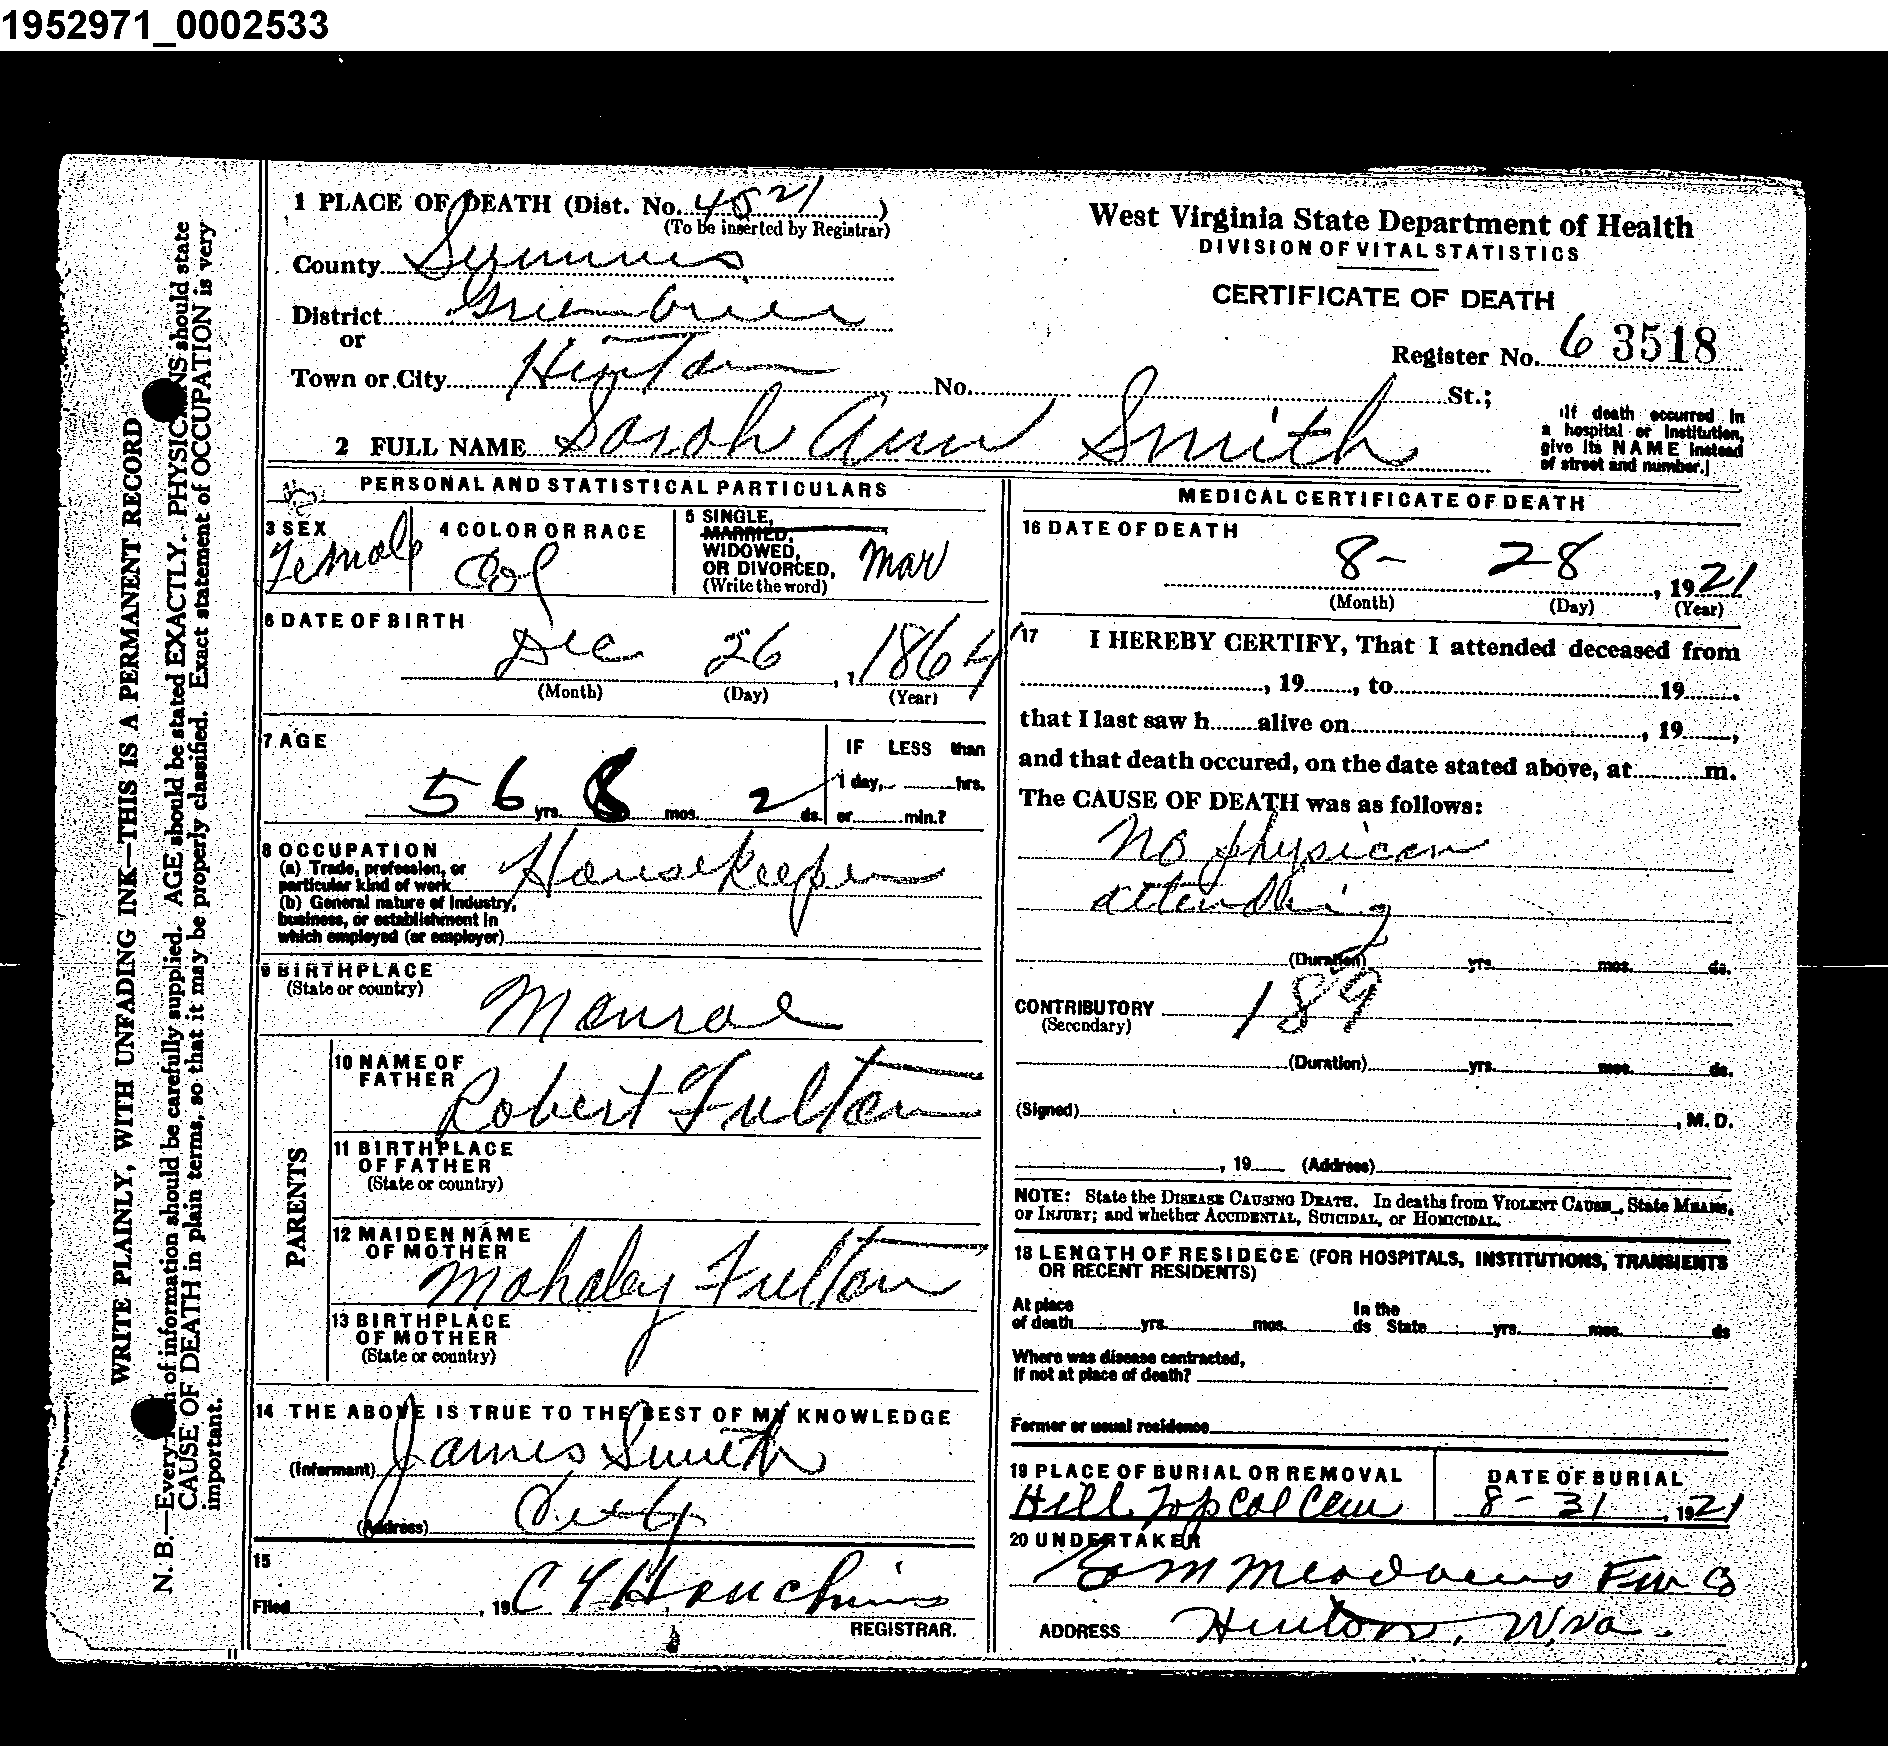 1952971_0002533
1 PLACE OF DEATH (Dist. No. 4521)
(To be inserted by Registrar)
County Summers
District Greenbrier
or
Town or City Hinton No. St.;
West Virginia State Department of Health
DIVISION OF VITAL STATISTICS
CERTIFICATE OF DEATH
Register No. 6 3518
(If death occurred in
a hospital or institution,
give its NAME instead
of street and number.)
2 FULL NAME Sarah Ann Smith
PERSONAL AND STATISTICAL PARTICULARS
3 SEX
Female
4 COLOR OR RACE
Col
5 SINGLE,
MARRIED,
WIDOWED,
OR DIVORCED,
(Write the word)
Mar
6 DATE OF BIRTH
Dec 26, 1864
(Month) (Day) (Year)
7 AGE
56 yrs. 8 mos. 2 ds.
IF LESS than
1 day, hrs.
or min.?
8 OCCUPATION
(a) Trade, profession, or
particular kind of work Housekeeper
(b) General nature of Industry,
business, or establishment in
which employed (or employer)
9 BIRTHPLACE
(State or country)
Monroe
PARENTS
10 NAME OF
FATHER
Robert Fulton
11 BIRTHPLACE
OF FATHER
(State or country)
12 MAIDEN NAME
OF MOTHER
Mahaley Fulton
13 BIRTHPLACE
OF MOTHER
(State or country)
14 THE ABOVE IS TRUE TO THE BEST OF MY KNOWLEDGE
(Informant) James Smith
(Address) City
15
Filed , 19 C Y Houchins
REGISTRAR.
MEDICAL CERTIFICATE OF DEATH
16 DATE OF DEATH
8- 28, 1921
(Month) (Day) (Year)
17 I HEREBY CERTIFY, That I attended deceased from
, 19 , to 19 .
that I last saw h alive on , 19 ,
and that death occured, on the date stated above, at m.
The CAUSE OF DEATH was as follows:
No physican
attending
(Duration) yrs. mos. ds.
CONTRIBUTORY
(Secondary)
189
(Duration) yrs. mos. ds.
(Signed) , M. D.
, 19 (Address)
NOTE: State the DISEASE CAUSING DEATH. In deaths from VIOLENT CAUSE, State MEANS,
OF INJURY; and whether ACCIDENTAL, SUICIDAL, or HOMICIDAL.
18 LENGTH OF RESIDECE (FOR HOSPITALS, INSTITUTIONS, TRANSIENTS
OR RECENT RESIDENTS)
At place
of death yrs. mos. ds
In the
State yrs. mos. ds
Where was disease contracted,
If not at place of death?
Former or usual residence
19 PLACE OF BURIAL OR REMOVAL
Hill Top Col Cem
DATE OF BURIAL
8-31, 1921
20 UNDERTAKER
Meadows
ADDRESS Hinton, W. Va.
WRITE PLAINLY, WITH UNFADING INK—THIS IS A PERMANENT RECORD
N. B.—Every of information should be carefully supplied. AGE should be stated EXACTLY. PHYSICIANS should state
CAUSE OF DEATH in plain terms, so that it may be properly classified. Exact statement of OCCUPATION is very
important.